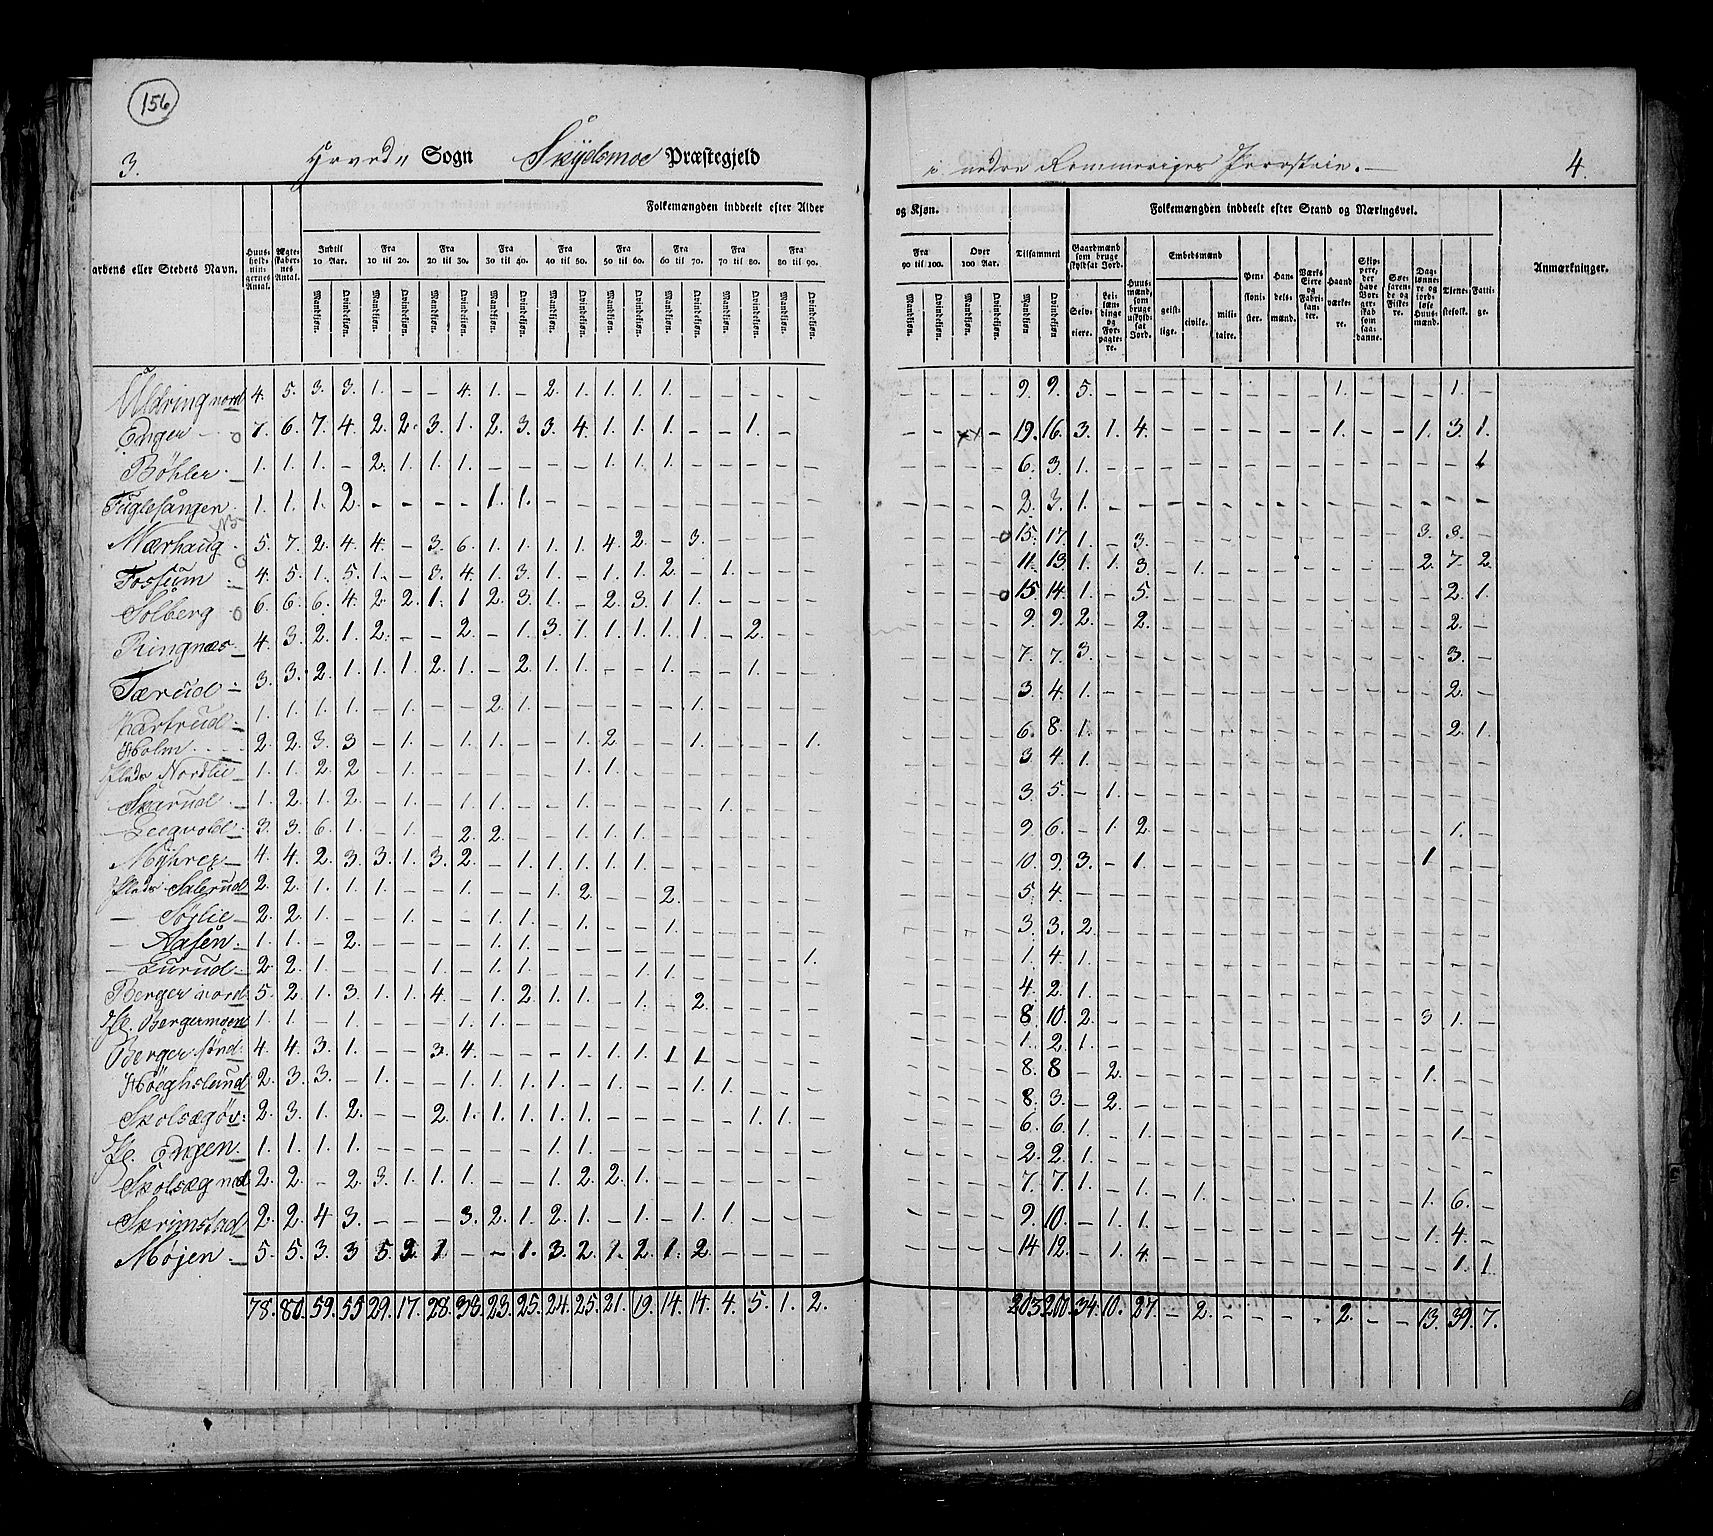 156
3. Hoved- Sogn Skydsmoe Præstegjeld
i nedre Rommeriges Provstie. — 4.
Folkemængden inddeelt efter Alder og Kjøn. Folkemængden inddeelt efter Stand og Næringsvei.
aardens eller Stedets Navn. Huusholdningernes Antal. Ægteskabernes Antal. Indtil 10 Aar. Fra 10 til 20. Fra 20 til 30. Fra 30 til 40. Fra 40 til 50. Fra 50 til 60. Fra 60 til 70. Fra 70 til 80. Fra 80 til 90. Fra 90 til 100. Over 100 Aar. Tilsammen
Gaardmænd som bruge skyldsat Jord. Selveiere. Leilændinge og Forpagtere. Huusmænd, som bruge uskyldsat Jord. Embedsmænd geistlige. civile. militaire. Pensionister. Handelsmænd. Værks Eiere og Fabrikanter. Haandværkere. Skippere, der have Borgerskab som saadanne. Søefarende og Fiskere. Daglønnere og jordløse Huusmænd. Tienestefolk. Fattige. Anmærkninger.
Mandkjøn. Qvindekjøn.
Uldring nord 4. 5. 3. 3. 1. – – 4. 1. – 2. 1. 1. 1. 1. – – – – – 9. 9. 5. – – – – – – – – 1. – – – 1. –
Enger 7. 6. 7. 4. 2. 2. 3. 1. 2. 3. 3. 4. 1. 1. 1. – – 1. – – 19. 16. 3. 1. 4. – – – – – – 1. – – 1. 3. 1.
Bøhler 1. 1. 1. – 2. 1. 1. 1. – – – – 1. 1. 1. – – – – – 6. 3. 1. – – – – – – – – – – – – – 1
Fuglesangen 1. 1. 1. 2. – – – – 1. 1. – – – – – – – – – – 2. 3. 1. – – – – – – – – – – – – – –
Mærhaug 5. 7. 2. 4. 4. – 3. 6. 1. 1. 1. 1. 4. 2. – 3. – – – – 15. 17. 1. – 3. – – – – – – – – – 3. 3. –
Fossum 4. 5. 1. 5. 1. – 3. 4. 1. 3. 1. – 1. 1. 2. – 1. – – – 11. 13. 1. 1. 3. – 1. – – – – – – – 2. 7. 2.
Solberg 6. 6. 6. 4. 2. 2. 1. 1. 2. 3. 1. – 2. 3. 1. 1. – – – – 15. 14. 1. – 5. – – – – – – – – – – 2. 1.
Ringnæs 4. 3. 2. 1. 2. – – 2. – 1. 3. 1. 1. 1. 1. 1. – 2. – – 9. 9. 2. – 2. – – – – – – – – – – 2. –
Tærud 3. 3. 2. 1. 1. 1. 2. 1. – 2. 1. 1. – – 1. – – 1. – – 7. 7. 3. – – – – – – – – – – – – 3. –
1. 1. 1. 1. – 1. – – 2. 1. – – – – – 1. – – – – 3. 4. 1. – – – – – – – – – – – – 2. –
Holm 2. 2. 3. 3. – 1. – 1. 1. – – 1. 2. – – 1. – – – 1. 6. 8. 1. – – – – – – – – – – – – 2. 1.
Plads Nordlie 1. 1. 2. 2. – 1. – – – – – 1. 1. – – – – – – – 3. 4. 1. – – – – – – – – – – – – – –
Skærud 1. 2. 1. 2. – 1. – 1. 1. – – 1. – – – – 1. – – – 3. 5. – 1. – – – – – – – – – – – – –
Leegvold 3. 3. 6. 1. – 1. – 2. 2. – – 1. 1. 1. – – – – – – 9. 6. – 1. 2. – – – – – – – – – – 1. –
Myhrer 4. 4. 2. 3. 3. 1. 3. 2. – 1. 1. 1. 1. 1. – – – – – – 10. 9. 3. – 1. – – – – – – – – – 1 – –
Plads Salerud 2. 2. 1. 1. 1. – – 1. – – 1. 2. – – 2. – – – – – 5. 4. – – – – – – – – – – – – – – –
— Sørlie 2. 2. 1. – – 1. – – 1. 1. – 1. – – 1. – – – – – 3. 3. 2. – – – – – – – – – – – – – –
— Aasen 1. 1. – 2. – – – – 1. 1. – – – – – – – – – 1. 1. 4. 1. – – – – – – – – – – – – – –
— Lurud 2. 2. 1. – – – 1. – 1. 1. – – – 1. 1. – – – – – 4. 2. 1. – – – – – – – – – – – – – –
Berger nord 5. 2. 1. 3. 1. 1. 4. – 1. 2. 1. 1. – 1. – 2. – – – – 8. 10. 2. – – – – – – – – – – – 3 1. –
Pl. Bergermoen 1. 1. – 1. – – – 1. 1. – – – – – – – – – – – 1. 2. 1. – – – – – – – – – – – – – –
Berger sønd. 4. 4. 3. 1. – – 3. 4. – – – 1. 1. 1. 1 1 – – – – 8. 8 – 2. – – – – – – – – – – 1. – –
Høeghslund 2. 3. 3. – 1. – – 1. 1. 1. 1. – 1. – – 1. 1. – – – 8. 3. – 2. – – – – – – – – – – – – –
Skolsægøv: 2. 3. 1. 2. – – 2. 1. 1. 1. 1. 1. – – – – – 1. 1. – 6. 6. 1. – 1. – – – – – – – – – – 1. –
Pl. Engen 1. 1. 1. 1. – – – – – – 1. 1. – – – – – – – – 2. 2. 1. – – – – – – – – – – – – – –
Skolsæg ned 2. 2. – 2. 3. 1. 1. 1. – – 1. 2. 2. 1. – – – – – – 7. 7. 1. – 1. – 1. – – – – – – – 1. 6. –
Skrimstad 2. 2. 4. 3. – – – 3. 2. 1. 2. 1. – 1. – 1. 1. – – – 9. 10. – 1. 1. – – – – – – – – – 1. 4. –
Møjen 5. 5. 3. 3 5. 2. 1. – – 1. 3. 2. 1. 2. 1. 2. – – – – 14. 12. – 1. 4. – – – – – – – – – – 1. 1.
78. 80. 59. 55 29. 17. 28. 38. 23. 25. 24. 25. 21. 19. 14. 14. 4. 5. 1. 2. 203. 200. 34. 10. 27. – 2. – – – – 2. – – 13. 39. 7.